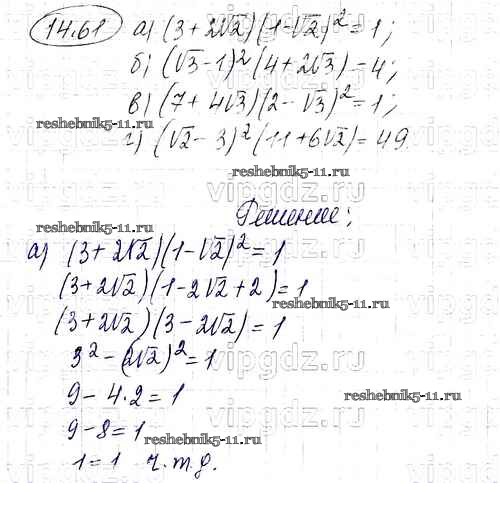 14.61 а) (3 + 2√2)(1-√2)² = 1;
б) (√3-1)²(4+2√3) = 4;
в) (7 + 4√3)(2-√3)² = 1;
reshebnik5-11.ru
г) (√2-3)²(11+6√2) = 49.
reshebnik5-11.ru
vipgdz.ru
Решение;
reshebnik5-11.ru
а) (3+2√2)(1-√2)² = 1
vipgdz.ru
(3+2√2)(1-2√2+2) = 1
reshebnik5-11.ru
(3+2√2)(3-2√2) = 1
vipgdz.ru
3² - (2√2)² = 1
9 - 4·2 = 1
vipgdz.ru
9 - 8 = 1
reshebnik5-11.ru
1 = 1 ч.т.д.